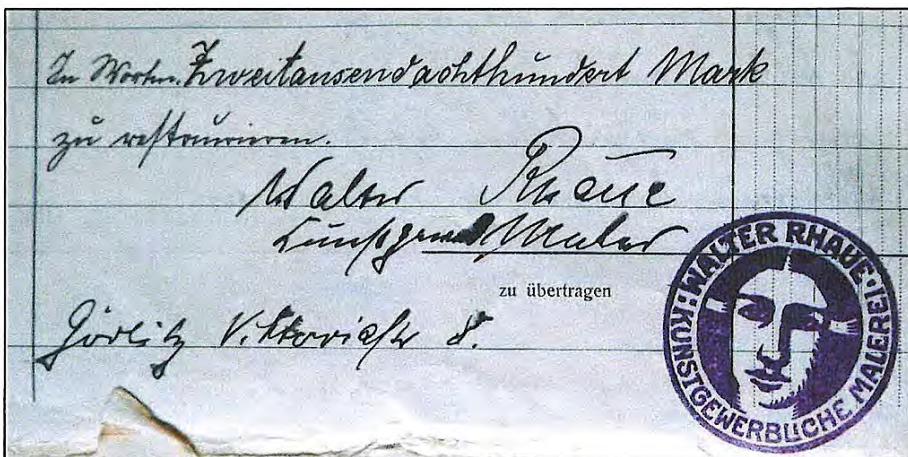 In Worten. Zweitausendachthundert Mark
zu restaurieren.
Walter Rhaue
Kunstgew. Maler
zu übertragen
Görlitz Viktoriastr 8.
WALTER RHAUE · KUNSTGEWERBLICHE MALEREI ·